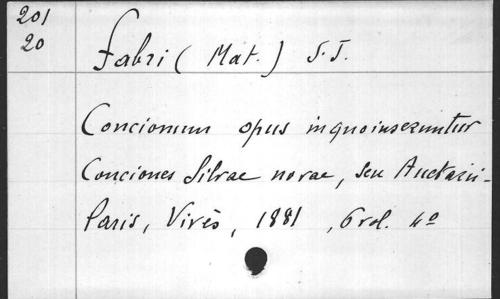 201
20
Fabri (Mat.) S.J.
Concionum opus in quo inseruntur
Conciones Silvae novae, seu Auctarii-
Paris, Vivès, 1881, 6 vol. 4º